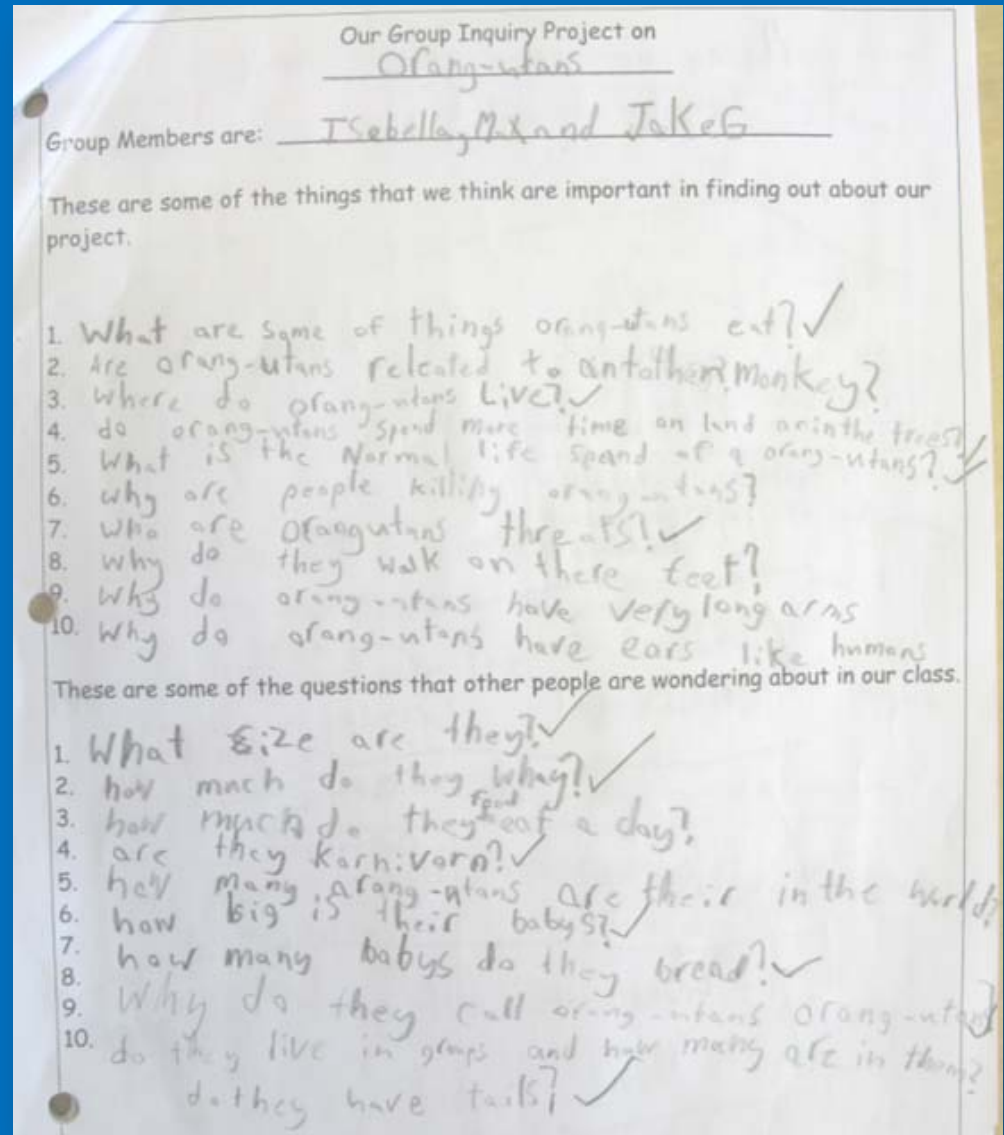 Our Group Inquiry Project on
Orang-utans
Group Members are: ISebella, Max and JaKe G
These are some of the things that we think are important in finding out about our
project.
1. What are some of things orang-utans eat?
2. Are orang-utans relcated to antother monkey?
3. Where do orang-utans Live?
4. do orang-utans spend more time on land or in the trees?
5. What is the Normal life spand of a orang-utans?
6. why are people killing orang-utans?
7. Who are orangutans threats?
8. why do they walk on there feet?
9. why do orang-utans have very long arms
10. Why do orang-utans have ears like humans
These are some of the questions that other people are wondering about in our class.
1. What size are they?
2. how much do they whay?
3. how much do they food eat a day?
4. are they karnivorn?
5. how many orang-utans are their in the world?
6. how big is their babys?
7. how many babys do they bread?
8.
9. Why do they call orang-utans orang-utans
10. do they live in groups and how many are in them?
do they have tails?